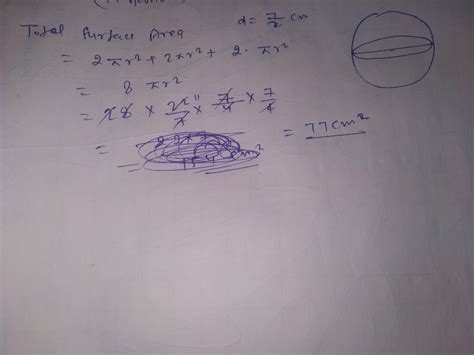 Total Surface Area d = 7/2 cm
= 2πr² + 2πr² + 2·πr²
= 8 πr²
= 8 × 22/7 × 7/4 × 7/4
= = 77 cm²